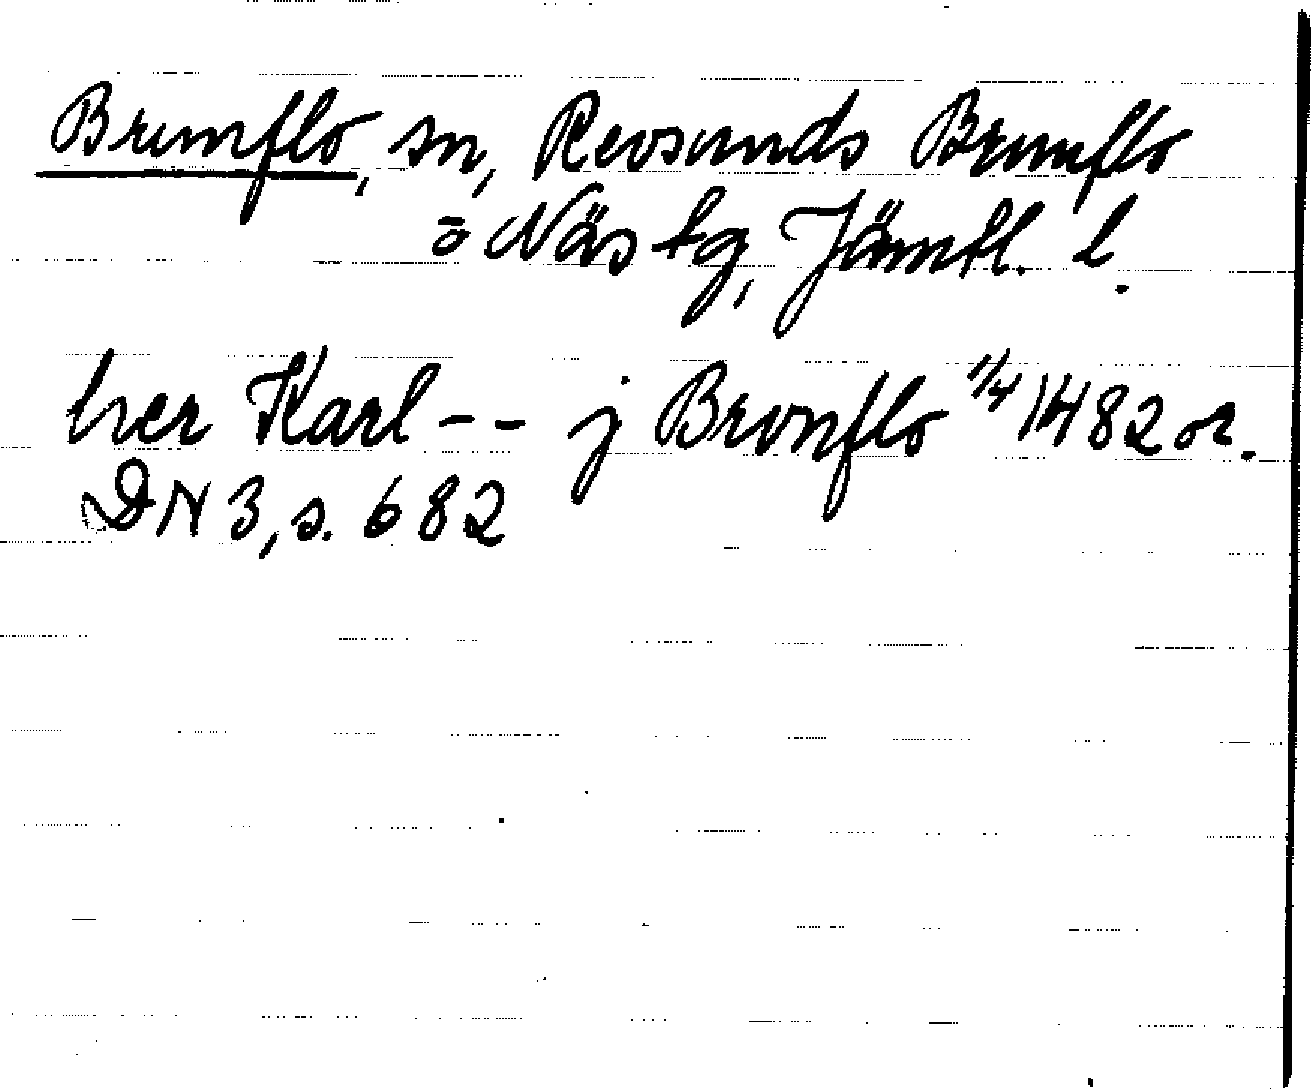 Brunflo, sn, Revsunds Brunflo
o Näs tg, Jämtl. l.
her Karl -- j Bronflo 1/4 1482 or.
DN 3, s. 682